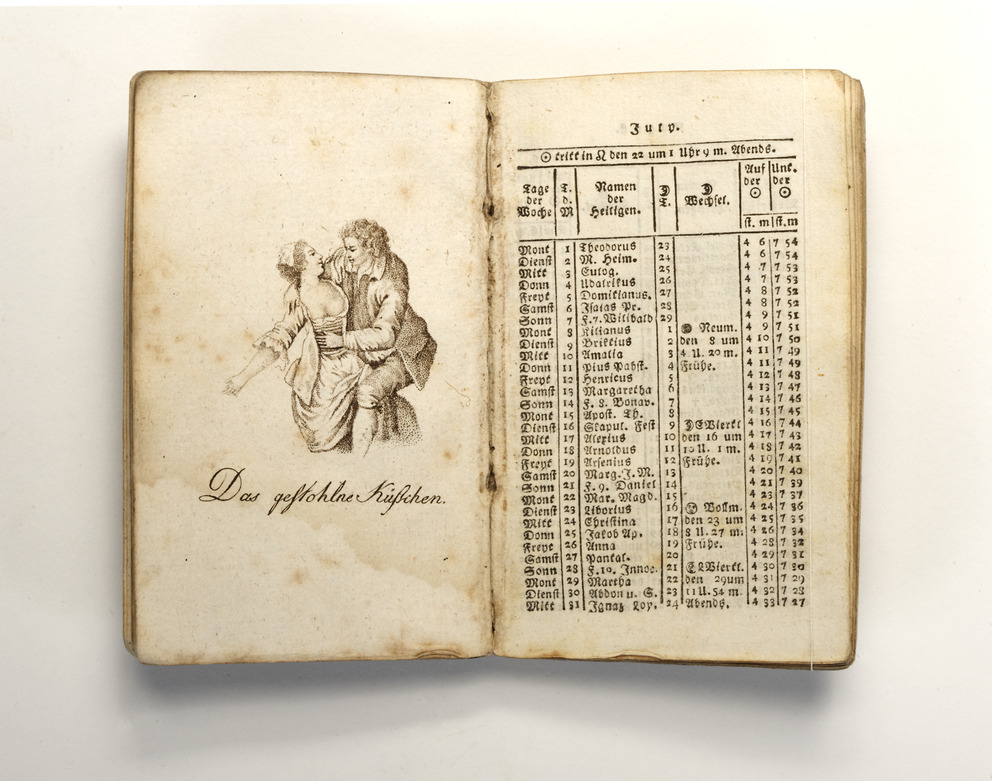 Das gestohlne Küßchen.
July.
☉ tritt in ♌ den 22 um 1 Uhr 9 m. Abends.
Tage der Woche T. d. M Namen der Heiligen. ☽ T. ☽ Wechsel. Auf der ☉ Unt. der ☉
st. m st. m
Mont 1 Theodorus 23 4 6 7 54
Dienst 2 M. Heim. 24 4 6 7 54
Mitt 3 Eulog. 25 4 7 7 53
Donn 4 Udalrikus 26 4 7 7 53
Freyt 5 Domitianus. 27 4 8 7 52
Samst 6 Isaias Pr. 28 4 8 7 52
Sonn 7 F. 7. Wilibald 29 4 9 7 51
Mont 8 Kilianus 1 Neum. 4 9 7 51
Dienst 9 Briktius 2 den 8 um 4 10 7 50
Mitt 10 Amalia 3 4 U. 20 m. 4 11 7 49
Donn 11 Pius Pabst. 4 Frühe. 4 11 7 49
Freyt 12 Henricus 5 4 12 7 48
Samst 13 Margaretha 6 4 13 7 47
Sonn 14 F. 8. Bonav. 7 4 14 7 46
Mont 15 Apost. Th. 8 4 15 7 45
Dienst 16 Skapul. Fest 9 ☽ EViertl 4 16 7 44
Mitt 17 Alexius 10 den 16 um 4 17 7 43
Donn 18 Arnoldus 11 10 U. 1 m. 4 18 7 42
Freyt 19 Arsenius 12 Frühe. 4 19 7 41
Samst 20 Marg. J. M. 13 4 20 7 40
Sonn 21 F. 9. Daniel 14 4 21 7 39
Mont 22 Mar. Magd. 15 4 23 7 37
Dienst 23 Liborius 16 Vollm. 4 24 7 36
Mitt 24 Christina 17 den 23 um 4 25 7 35
Donn 25 Jakob Ap. 18 8 U. 27 m. 4 26 7 34
Freyt 26 Anna 19 Frühe. 4 28 7 32
Samst 27 Pantal. 20 4 29 7 31
Sonn 28 F. 10. Innoc. 21 ☾ LViertl. 4 30 7 30
Mont 29 Martha 22 den 29 um 4 31 7 29
Dienst 30 Abdon u. S. 23 11 U. 54 m. 4 32 7 28
Mitt 31 Ignaz Loy. 24 Abends. 4 33 7 27